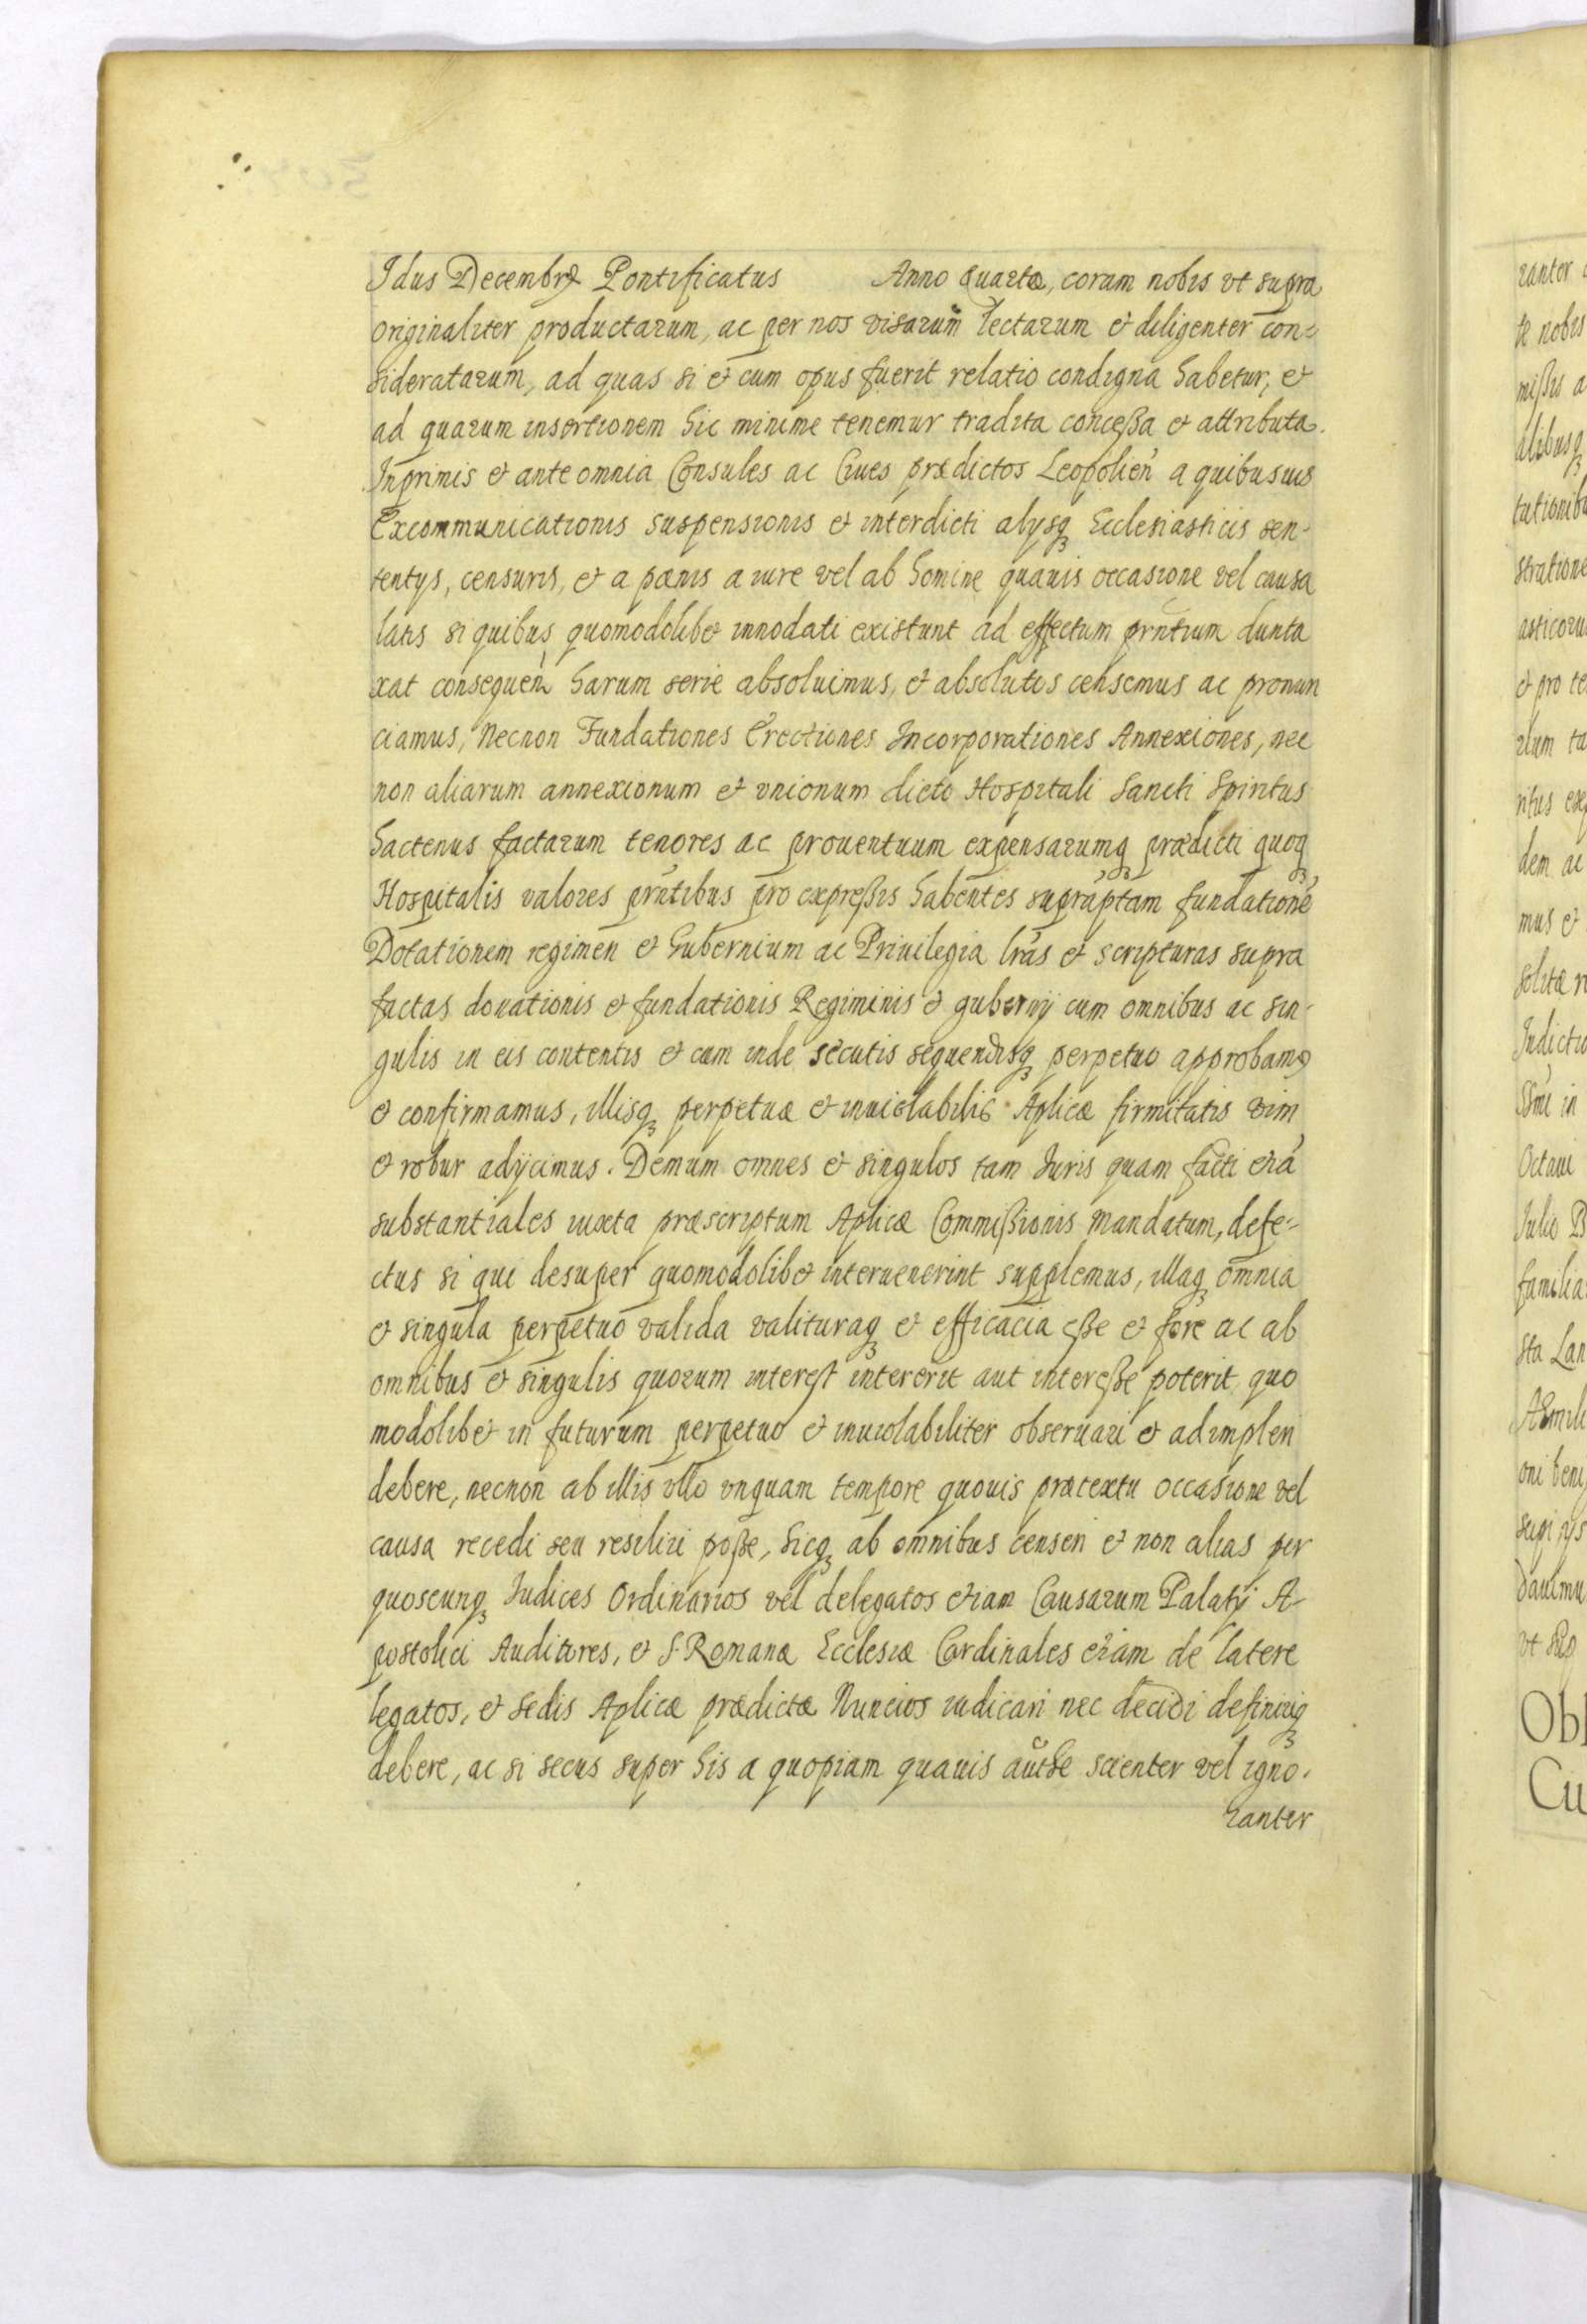 Idus Decembrꝫ Pontificatus Anno Quarto, coram nobis vt supra
originaliter productarum, ac per nos visarum lectarum et diligenter con-
sideratarum, ad quas si et cum opus fuerit relatio condigna habetur, et
ad quarum insertionem hic minime tenemur tradita concessa et attributa.
Inprimis et ante omnia Consules ac Ciues prædictos Leopolien̄ a quibusuis
Excommunicationis suspensionis et interdicti alysqꝫ Ecclesiasticis sen-
tentys, censuris, et a pœnis a iure vel ab homine quauis occasione vel causa
latis si quibus quomodolibet innodati existunt ad effectum prn̄tium dunta
xat consequen̄ harum serie absoluimus, et absolutos censemus ac pronun
ciamus, Necnon Fundationes Erectiones Incorporationes Annexiones, nec
non aliarum annexionum et vnionum dicto Hospitali Sancti Spiritus
hactenus factarum tenores ac prouentuum expensarumqꝫ prædicti quoqꝫ
Hospitalis valores prn̄tibus pro expressis habentes supráptam fundationē
Dotationem regimen et Gubernium ac Priuilegia lrās et scripturas supra
factas donationis et fundationis Regiminis et gubernij cum omnibus ac sin-
gulis in eis contentis et cum inde secutis sequendisqꝫ perpetuo approbamꝰ
et confirmamus, illisqꝫ perpetuæ et inuiolabilis Aplicæ firmitatis vim
et robur adijcimus. Demum omnes et singulos tam Iuris quam facti etiā
substantiales iuxta præscriptum Aplicæ Commissionis mandatum, defe-
ctus si qui desuper quomodolibet interuenerint supplemus, illaqꝫ omnia
et singula perpetuo valida valituraqꝫ et efficacia esse et fore ac ab
omnibus et singulis quorum interest intererit aut interesse poterit quo
modolibet in futurum perpetuo et inuiolabiliter obseruari et adimpleri
debere, necnon ab illis vllo vnquam tempore quouis prætextu occasione vel
causa recedi seu resiliri posse, Sicqꝫ ab omnibus censeri et non alias per
quoscunqꝫ Iudices Ordinarios vel delegatos etiam Causarum Palatij A-
postolici Auditores, et S. Romanæ Ecclesiæ Cardinales etiam de latere
legatos, et Sedis Aplicæ prædictæ Nuncios iudicari nec decidi definiriqꝫ
debere, ac si secus super his a quopiam quauis aucthe scienter vel igno-
ranter